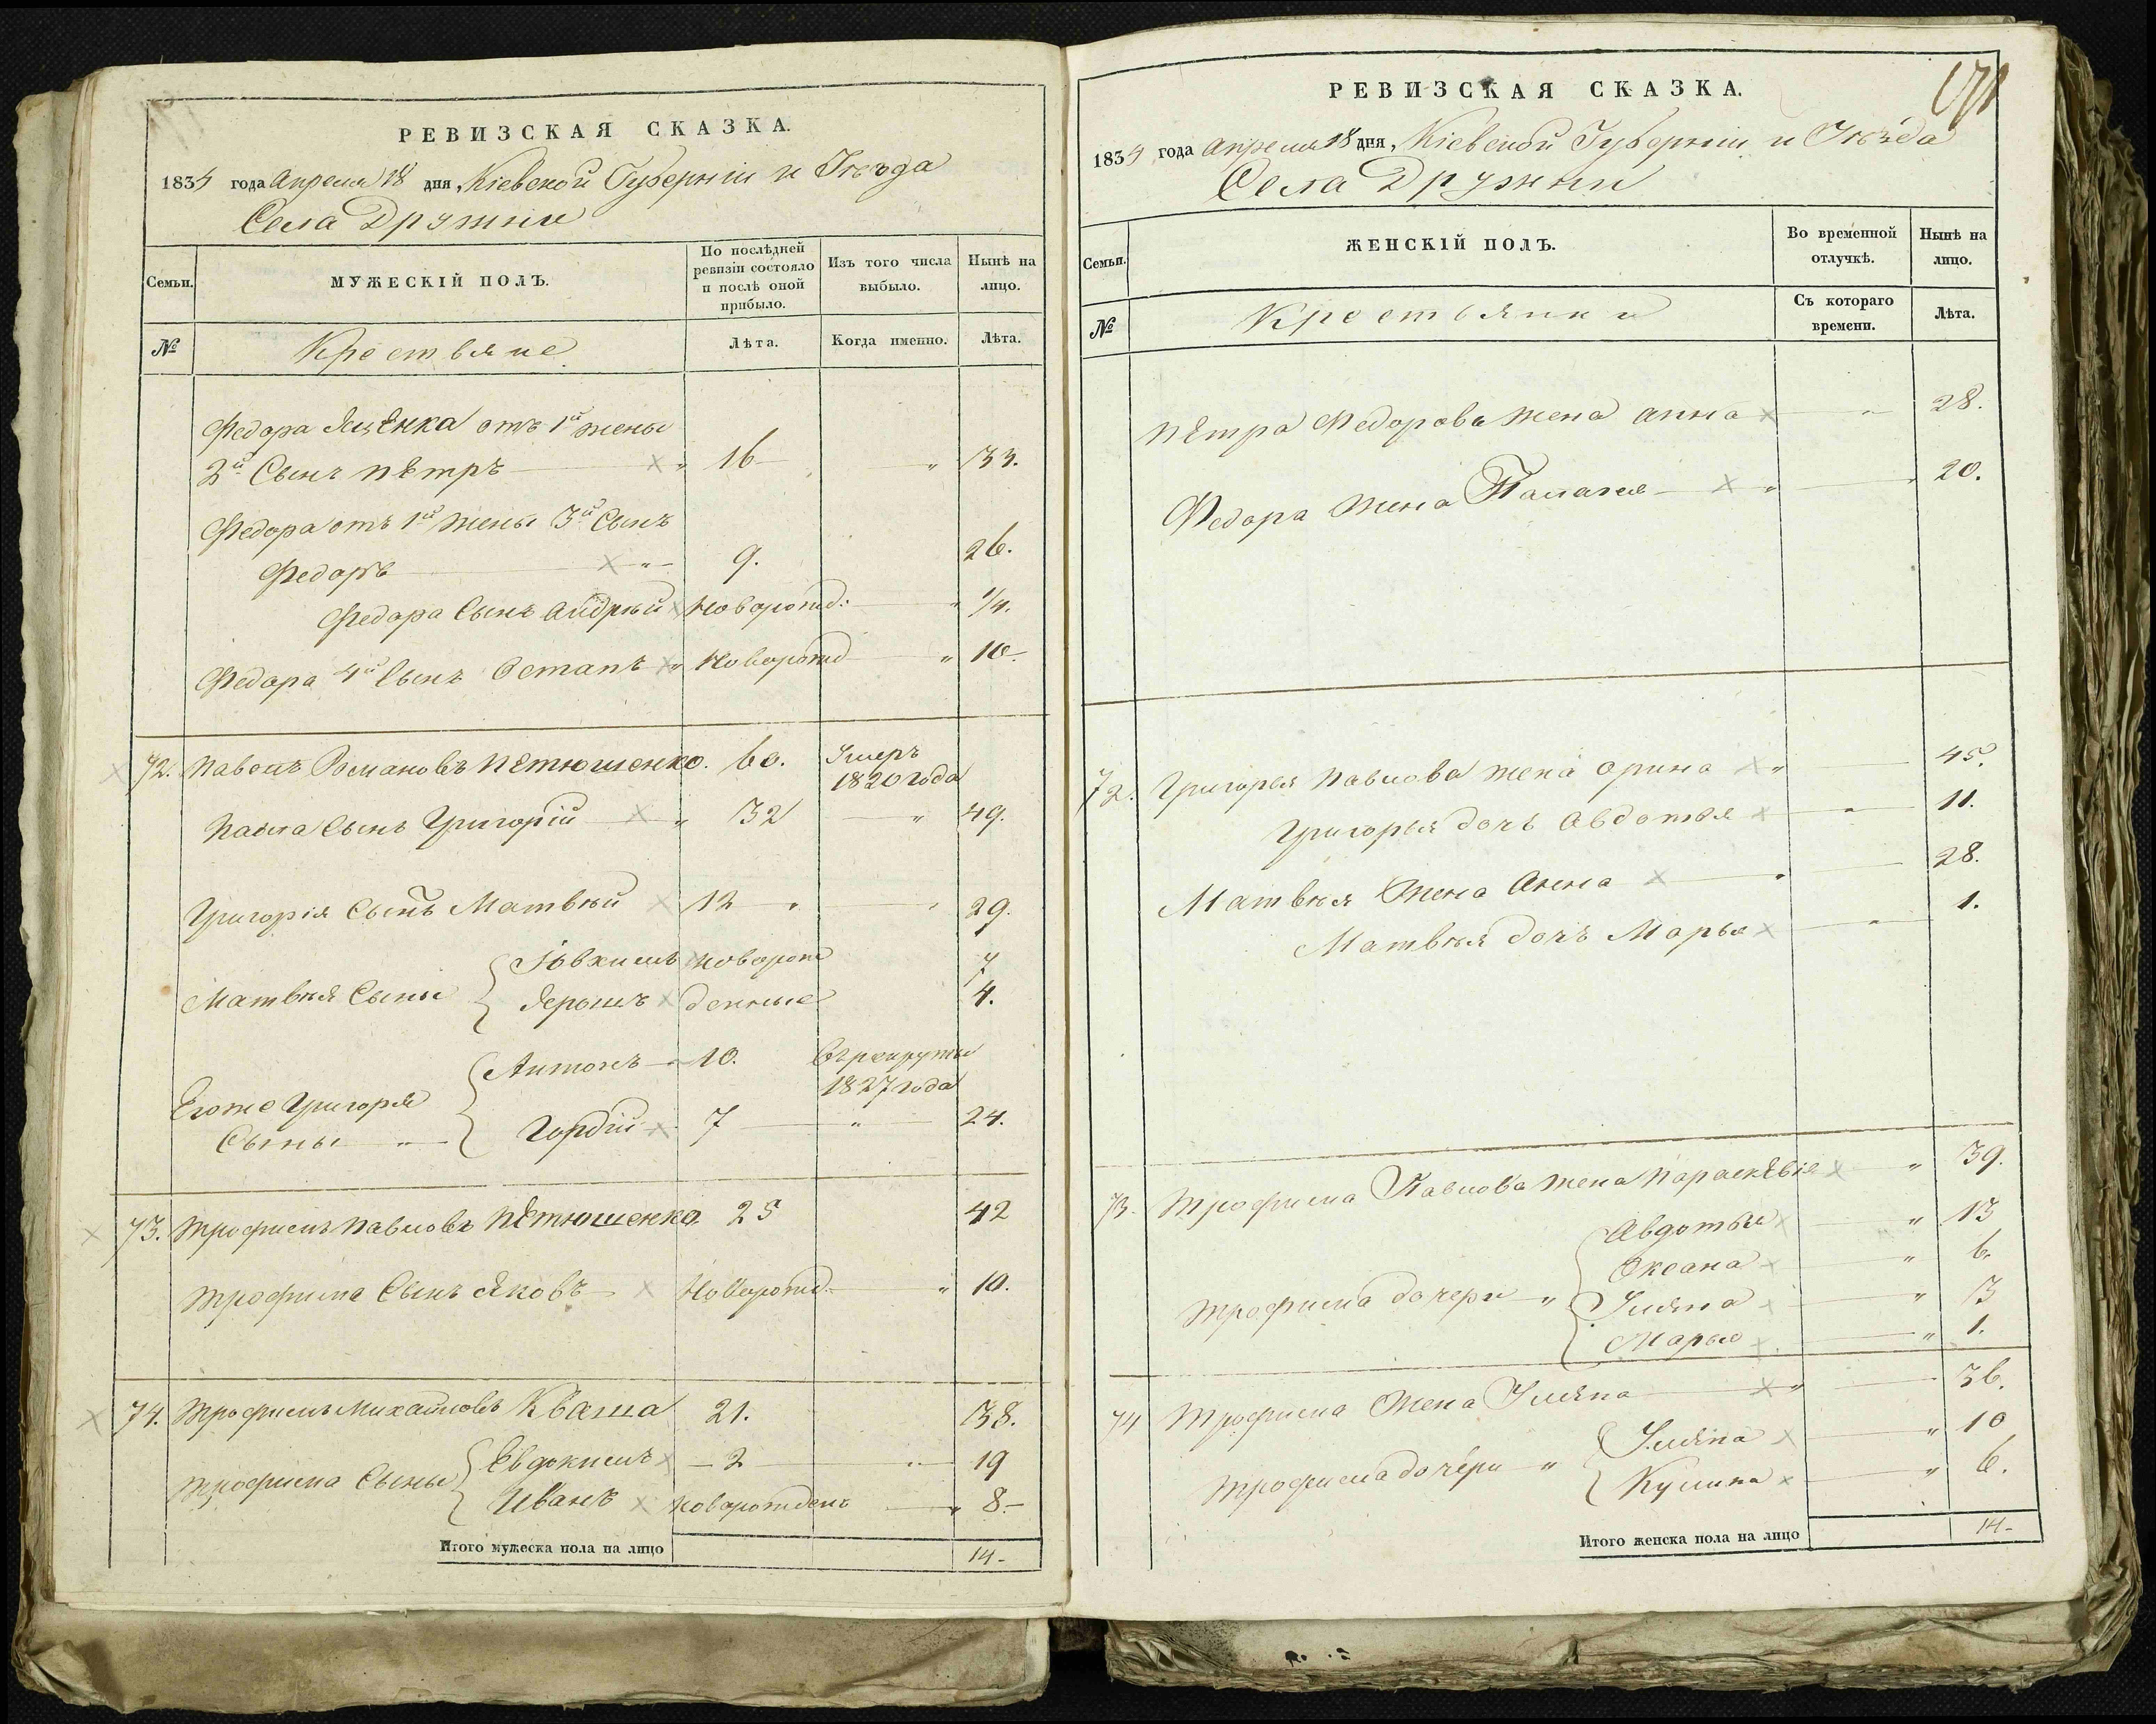 РЕВИЗСКАЯ СКАЗКА.
1834 года Апреля 18 дня, Кіевской Губерніи и Уѣзда
Села Дружни
Семьи.
МУЖЕСКІЙ ПОЛЪ.
По послѣдней ревизіи состояло и послѣ оной прибыло.
Изъ того числа выбыло.
Нынѣ на лицо.
№
Крестьяне
Лѣта.
Когда именно.
Лѣта.
Федора Яценка отъ 1й жены
2й Сынъ Петръ 16 33.
Федора отъ 1й жены 3й Сынъ
Федоръ 9. 26.
Федора Сынъ Андрѣй Новорожд: 1/4.
Федора 4й Сынъ Остапъ Новорожд 10.
72. Павелъ Романовъ Петюшенко. 60. Умеръ
1820 года
Павла Сынъ Григорій 32 49.
Григорія Сынъ Матвѣй 12 29.
Іовхимъ новорож 7
Матвѣя Сыны Ярошъ денные 4.
Антонъ 10. Въ рекруты
1827 года
Егоже Григорья
Сыны Гордій 7 24.
73. Трофимъ Павловъ Петюшенко 25 42
Трофима Сынъ Яковъ Новорожд. 10.
74. Трофимъ Михайловъ Кваша 21. 38.
Евдокимъ 2 19
Трофима Сыны Иванъ новорожденъ 8
Итого мужеска пола на лицо 14
РЕВИЗСКАЯ СКАЗКА.
1834 года Апреля 18 дня, Кіевской Губерніи и Уѣзда
Села Дружни
Семьи.
ЖЕНСКІЙ ПОЛЪ.
Во временной отлучкѣ.
Нынѣ на лицо.
№
Крестьянки
Съ котораго времени.
Лѣта.
Петра Федорова жена Анна 28.
Федора жена Палагея 20.
72. Григорья Павлова жена Орина 45.
Григорья дочь Авдотья 11.
Матвѣя Жена Анна 28.
Матвѣя дочь Марья 1.
73. Трофима Павлова жена Параскевія 39.
Авдотья 13
Оксана 6.
Трофима дочери Уляна 3
Марья 1.
74 Трофима Жена Уляна 36.
Уляна 10
Трофима дочери Кулина 6.
Итого женска пола на лицо 14